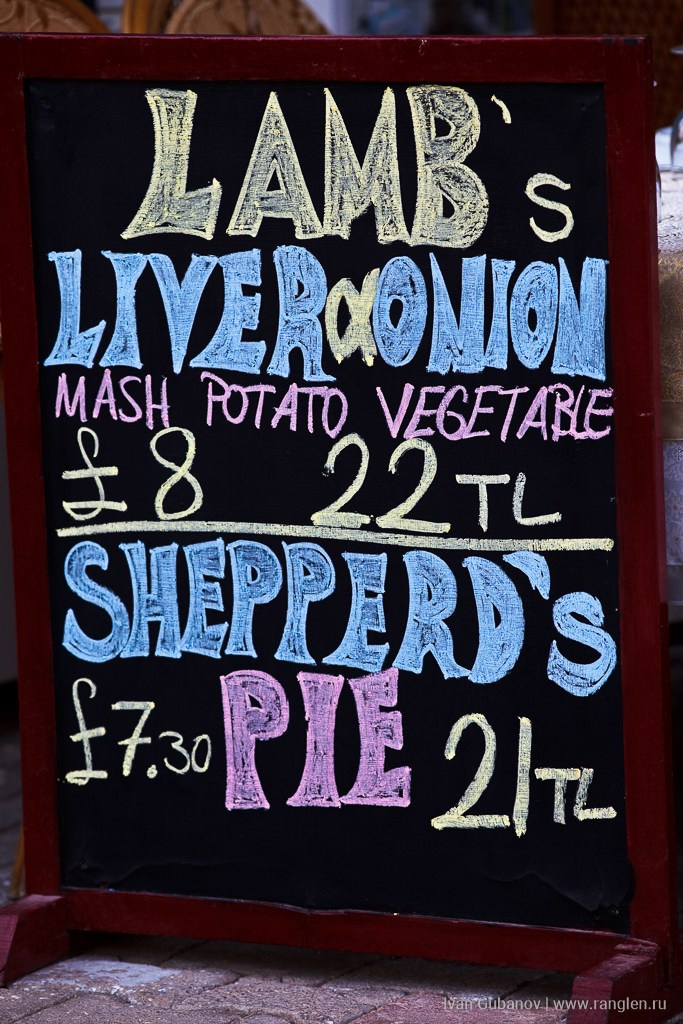 LAMB's
LIVER & ONION
MASH POTATO VEGETABLE
£8 22 TL
SHEPPERD's
PIE
£7.30 21 TL
Ivan Gubanov | www.ranglen.ru